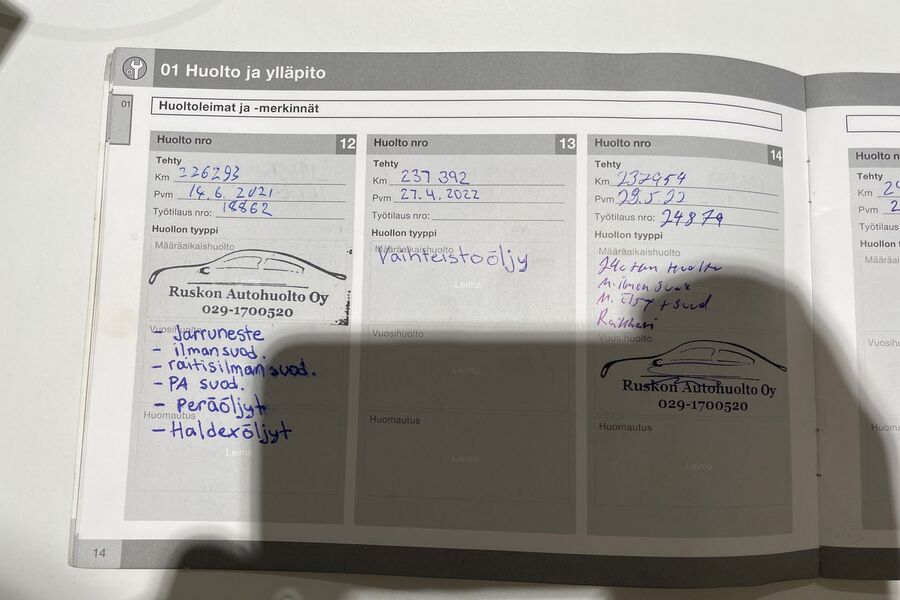 01 Huolto ja ylläpito
01
Huoltoleimat ja -merkinnät
Huolto nro 12
Tehty
Km 226293
Pvm 14.6. 2021
Työtilaus nro: 18862
Huollon tyyppi
Määräaikaishuolto
Ruskon Autohuolto Oy
029-1700520
Vuosihuolto
- Jarruneste
- ilmansuod.
- raitisilmansuod.
- PA suod.
- Peräöljyt
Huomautus
- Haldexöljyt
Leima
Huolto nro 13
Tehty
Km 237 392
Pvm 27.4. 2022
Työtilaus nro:
Huollon tyyppi
Määräaikaishuolto
Vaihteistoöljy
Leima
Vuosihuolto
Leima
Huomautus
Leima
Huolto nro 14
Tehty
Km 237954
Pvm 23.5.22
Työtilaus nro: 24879
Huollon tyyppi
Määräaikaishuolto
huolto
M. ilman suod
M. öljy + suod
Vuosihuolto
Ruskon Autohuolto Oy
029-1700520
Huomautus
Leima
Huolto n
Tehty
Km
Pvm
Työtilau
Huollon
Määräa
Vuosih
Huoma
14